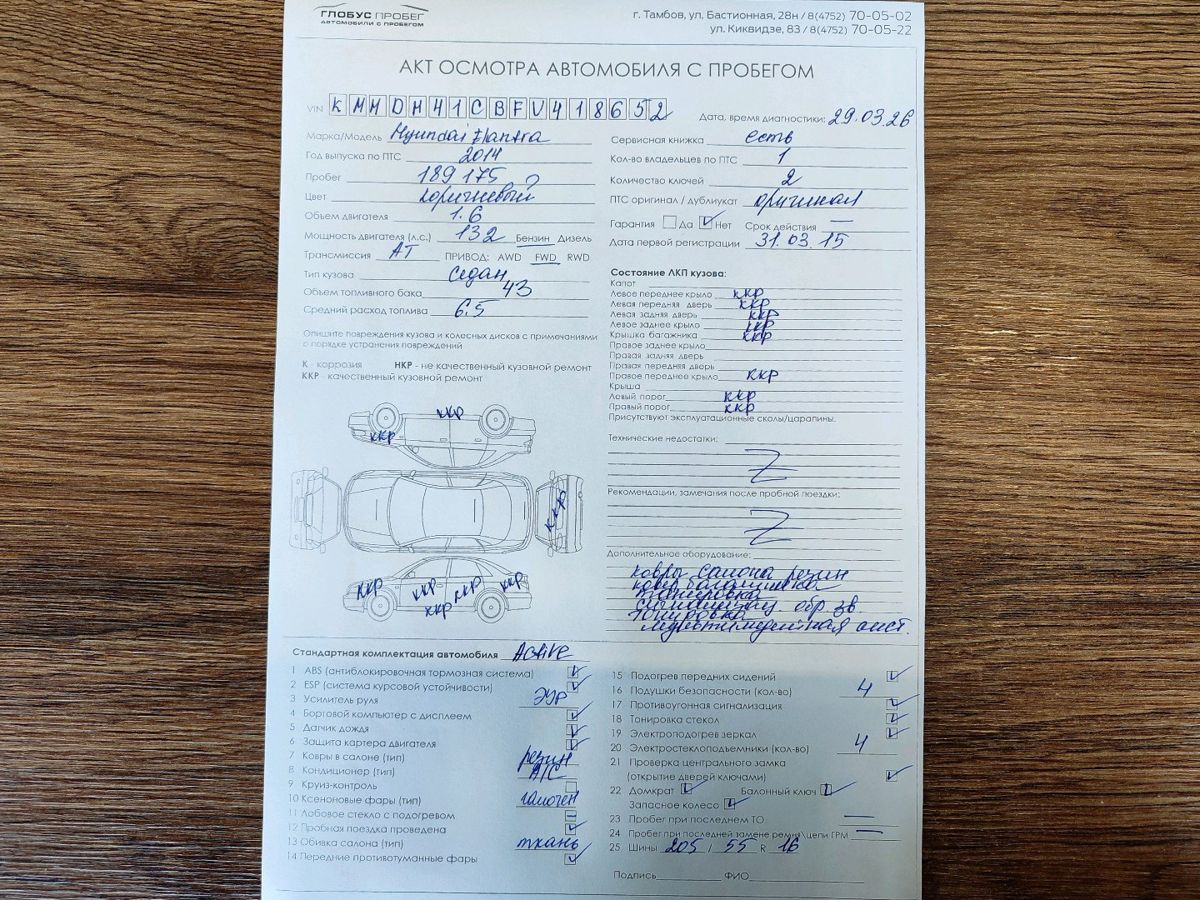 ГЛОБУС ПРОБЕГ
АВТОМОБИЛИ С ПРОБЕГОМ
г. Тамбов, ул. Бастионная, 28н / 8(4752) 70-05-02
ул. Киквидзе, 83 / 8(4752) 70-05-22
АКТ ОСМОТРА АВТОМОБИЛЯ С ПРОБЕГОМ
VIN KMHDH41CBFU418652
Дата, время диагностики: 29.03.26
Марка/Модель Hyundai Elantra
Год выпуска по ПТС 2014
Пробег 189 175
Цвет коричневый
Объем двигателя 1.6
Мощность двигателя (л.с.) 132 Бензин Дизель
Трансмиссия АТ ПРИВОД: AWD FWD RWD
Тип кузова Седан
Объем топливного бака 43
Средний расход топлива 6.5
Сервисная книжка есть
Кол-во владельцев по ПТС 1
Количество ключей 2
ПТС оригинал / дубликат оригинал
Гарантия Да Нет Срок действия —
Дата первой регистрации 31.03.15
Опишите повреждения кузова и колесных дисков с примечаниями
о порядке устранения повреждений
К - коррозия НКР - не качественный кузовной ремонт
ККР - качественный кузовной ремонт
ккр
ккр
ккр
ккр
ккр
ккр
ккр
ккр
Состояние ЛКП кузова:
Капот
Левое переднее крыло ккр
Левая передняя дверь ккр
Левая задняя дверь ккр
Левое заднее крыло ккр
Крышка багажника ккр
Правое заднее крыло
Правая задняя дверь
Правая передняя дверь
Правое переднее крыло ккр
Крыша
Левый порог ккр
Правый порог ккр
Присутствуют эксплуатационные сколы/царапины.
Технические недостатки:
Рекомендации, замечания после пробной поездки:
Дополнительное оборудование:
ковры салона резин
ковер багажника
тонировка
сигнализац обр зв.
мультимедийная сист.
Стандартная комплектация автомобиля Active
1 ABS (антиблокировочная тормозная система)
2 ESP (система курсовой устойчивости)
3 Усилитель руля ЭУР
4 Бортовой компьютер с дисплеем
5 Датчик дождя
6 Защита картера двигателя
7 Ковры в салоне (тип) резин
8 Кондиционер (тип) А/С
9 Круиз-контроль
10 Ксеноновые фары (тип) галоген
11 Лобовое стекло с подогревом
12 Пробная поездка проведена
13 Обивка салона (тип) ткань
14 Передние противотуманные фары
15 Подогрев передних сидений
16 Подушки безопасности (кол-во) 4
17 Противоугонная сигнализация
18 Тонировка стекол
19 Электроподогрев зеркал
20 Электростеклоподъемники (кол-во) 4
21 Проверка центрального замка
(открытие дверей ключами)
22 Домкрат Балонный ключ
Запасное колесо
23 Пробег при последнем ТО —
24 Пробег при последней замене ремня\цепи ГРМ —
25 Шины 205 / 55 R 16
Подпись ФИО